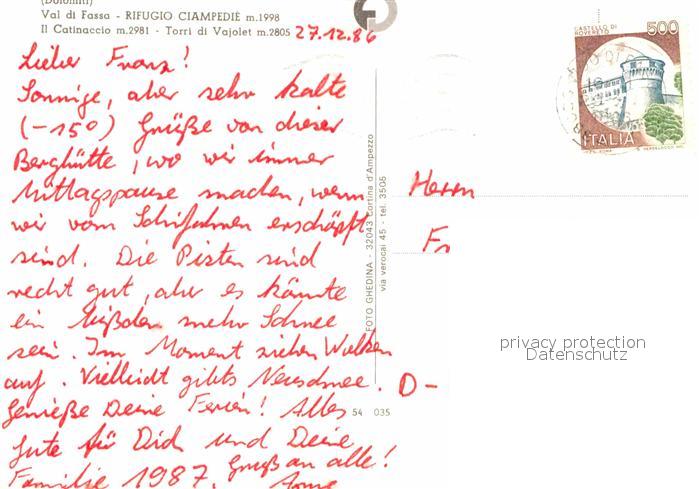 (Dolomiti)
Val di Fassa - RIFUGIO CIAMPEDIÈ m.1998
Il Catinaccio m.2981 - Torri di Vajolet m.2805
27.12.86
Lieber Franz!
Sonnige, aber sehr kalte
(-15°) Grüße von dieser
Berghütte, wo wir immer
Mittagspause machen, wenn
wir vom Schifahren erschöpft
sind. Die Pisten sind
recht gut, aber es könnte
ein bißchen mehr Schnee
sein. Im Moment ziehen Wolken
auf. Vielleicht gibts Neuschnee.
Genieße Deine Ferien! Alles
Gute für Dich und Deine
Familie 1987. Gruß an alle!
FOTO GHEDINA - 32043 Cortina d'Ampezzo
via verocai 45 - tel. 3505
54 035
CASTELLO DI
ROVERETO
500
ITALIA
Herrn
Fr
D-
privacy protection
Datenschutz